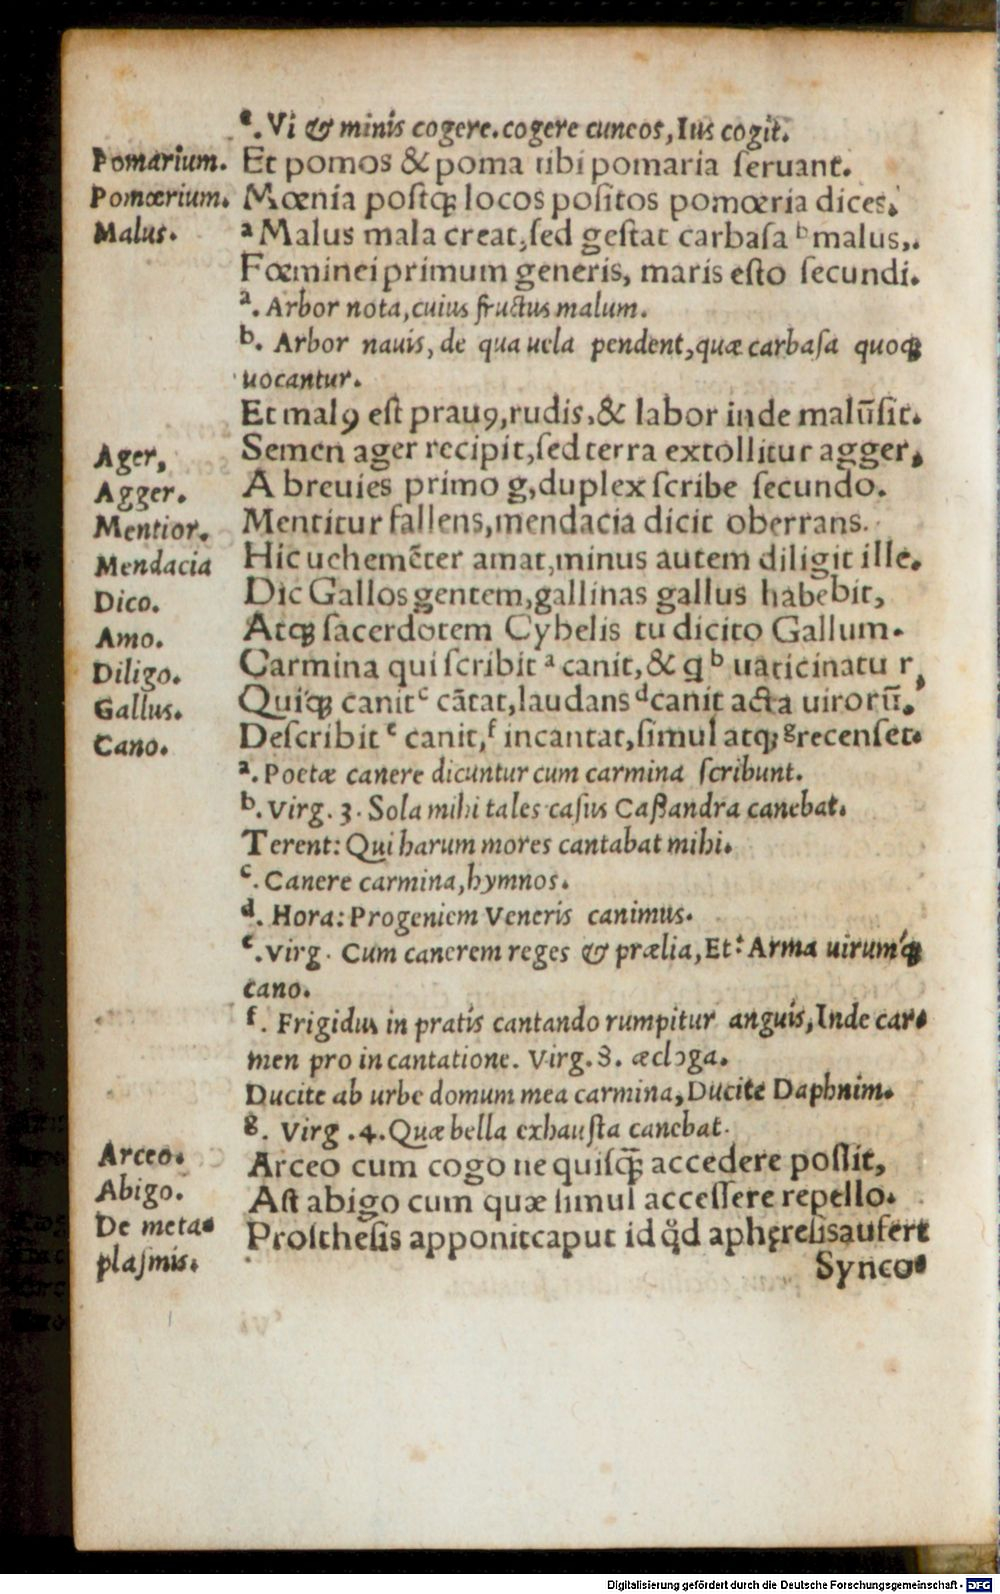 ᵉ. Vi & minis cogere. cogere cuneos, Ius cogit.
Pomarium. Et pomos & poma ubi pomaria ſeruant.
Pomœrium. Mœnia poſtqꝫ locos poſitos pomœria dices.
Malus. ᵃ Malus mala creat, ſed geſtat carbaſa ᵇ malus,.
Fœminei primum generis, maris eſto ſecundi.
ᵃ. Arbor nota, cuius fructus malum.
ᵇ. Arbor nauis, de qua uela pendent, quæ carbaſa quoqꝫ
uocantur.
Et malꝰ eſt prauꝰ, rudis, & labor inde malū ſit.
Ager, Semen ager recipit, ſed terra extollitur agger,
Agger. A breuies primo g, duplex ſcribe ſecundo.
Mentior. Mentitur fallens, mendacia dicit oberrans.
Mendacia Hic uehemēter amat, minus autem diligit ille.
Dico. Dic Gallos gentem, gallinas gallus habebit,
Amo. Atqꝫ ſacerdotem Cybelis tu dicito Gallum.
Diligo. Carmina qui ſcribit ᵃ canit, & q ᵇ uaticinatur,
Gallus. Quiqꝫ canit ᶜ cātat, laudans ᵈ canit acta uirorū.
Cano. Deſcribit ᵉ canit, ᶠ incantat, ſimul atqꝫ ᵍ recenſet.
ᵃ. Poetæ canere dicuntur cum carmina ſcribunt.
ᵇ. Virg. 3. Sola mihi tales caſus Caßandra canebat.
Terent: Qui harum mores cantabat mihi.
ᶜ. Canere carmina, hymnos.
ᵈ. Hora: Progeniem Veneris canimus.
ᵉ. Virg. Cum canerem reges & prælia, Et: Arma uirumqꝫ
cano.
ᶠ. Frigidus in pratis cantando rumpitur anguis, Inde car-
men pro incantatione. Virg. 8. æcloga.
Ducite ab urbe domum mea carmina, Ducite Daphnim.
ᵍ. Virg. 4. Quæ bella exhauſta canebat.
Arceo. Arceo cum cogo ne quiſqꝫ̄ accedere poſſit,
Abigo. Aſt abigo cum quæ ſimul acceſſere repello.
De meta- Proſtheſis apponit caput id q̃d aphęreſis aufert
plaſmis.
Synco-
Digitalisierung gefördert durch die Deutsche Forschungsgemeinschaft - DFG